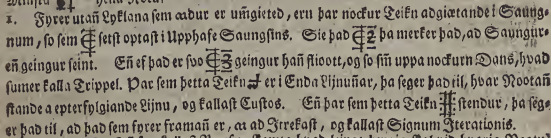 1. Fyrer utañ Lyklana sem adur er um̃gieted, eru þar nockur Teikn adgiætande i Saung-
num, so sem fetst optast i Upphafe Saungsins. Sie þad þa merker þad, ad Saungur-
eñ geingur seint. Eñ ef þad er svo geingur hañ flioott, og so sm̃ uppa nockurn Dans, hvad
sumer kalla Trippel. Þar sem þetta Teikn er i Enda Lijnuñar, þa seger þad til, hvar Nootañ
stande a epterfylgiande Lijnu, og kallast Custos. Eñ þar sem þetta Teikn stendur, þa seg-
er þad til, ad þad sem fyrer framañ er, a ad Itrekast, og kallast Signum Iterationis.